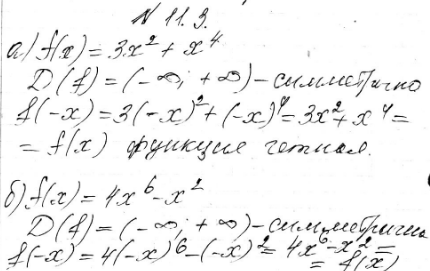 N 11.9.
а) f(x) = 3x² + x⁴
D(f) = (-∞; +∞) - симметрично
f(-x) = 3(-x)² + (-x)⁴ = 3x² + x⁴ =
= f(x) функция четная.
б) f(x) = 4x⁶ - x²
D(f) = (-∞; +∞) - симметрична
f(-x) = 4(-x)⁶ - (-x)² = 4x⁶ - x² =
= f(x)